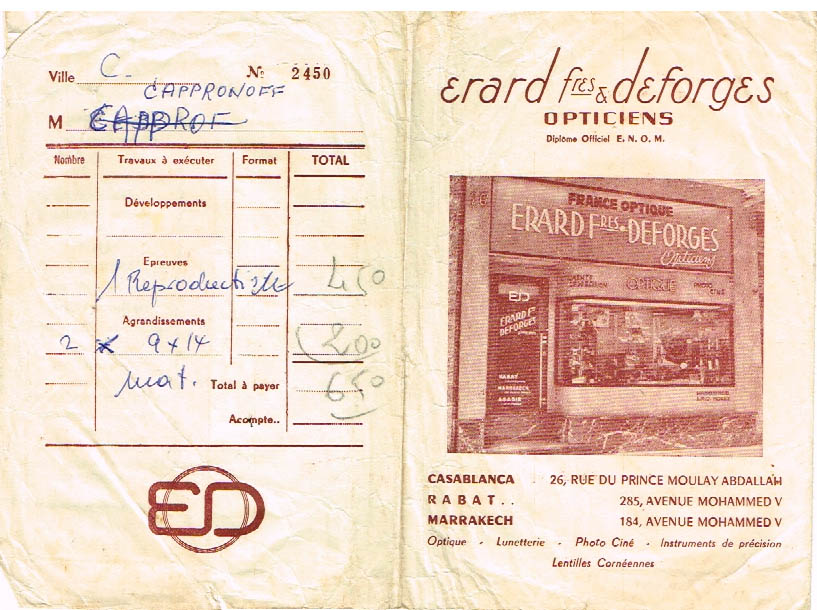 Ville C. Nº 2450
CAPPRONOFF
M CAPPROF
Nombre Travaux à exécuter Format TOTAL
Développements
Epreuves
1 Reproduction 450
Agrandissements
2 x 9x14 200
mat. Total à payer 650
Acompte..
ED
erard fres & deforges
OPTICIENS
Diplome Officiel E. N. O. M.
FRANCE OPTIQUE
ERARD FRES DEFORGES
Opticiens
OPTIQUE
PHOTO
ED
ERARD Fres
DEFORGES
RABAT
MARRAKECH
AGADIR
CASABLANCA 26, RUE DU PRINCE MOULAY ABDALLAH
RABAT.. 285, AVENUE MOHAMMED V
MARRAKECH 184, AVENUE MOHAMMED V
Optique - Lunetterie - Photo Ciné - Instruments de précision
Lentilles Cornéennes